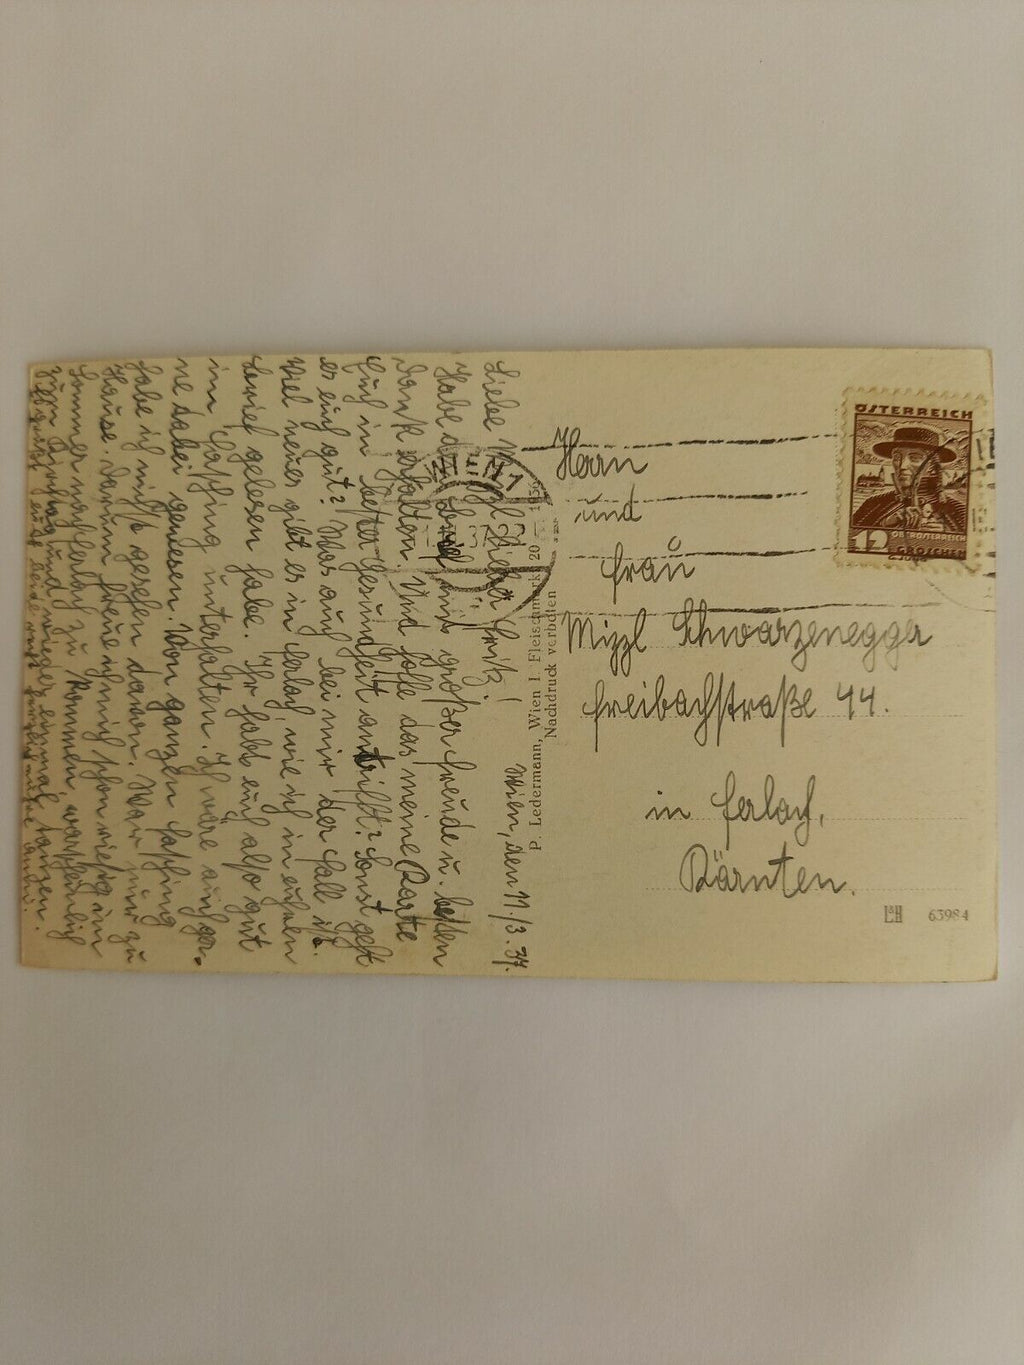 Wien, den 11./3. 37.
Liebe Mizzl, lieber Fritz!
Habe den Brief mit großer Freude u. besten
Dank erhalten. Und hoffe das meine Karte
Euch in bester Gesundheit antrifft? Sonst geht
es euch gut? Was auch bei mir der Fall ist.
Viel neues gibt es in Ferlach, wie ich in euren
Brief gelesen habe. Ihr habt euch also gut
im Fasching unterhalten. Ich wäre auch ger-
ne dabei gewesen. Von ganzen Fasching
habe ich nichts gesehen davon. War nur zu
Hause. Darum freue ich mich schon riesig im
Sommer nach Ferlach zu kommen, wahrscheinlich
zum und wieder einmal tanzen.
euch beide
WIEN 1
37-22
P. Ledermann, Wien I. Fleischmarkt 20
Nachdruck verboten
Herrn
und
Frau
Mizzl Schwarzenegger
Freibachstraße 44.
in Ferlach,
Kärnten.
ÖSTERREICH
OBERÖSTERREICH
12 GROSCHEN
L&H 63984